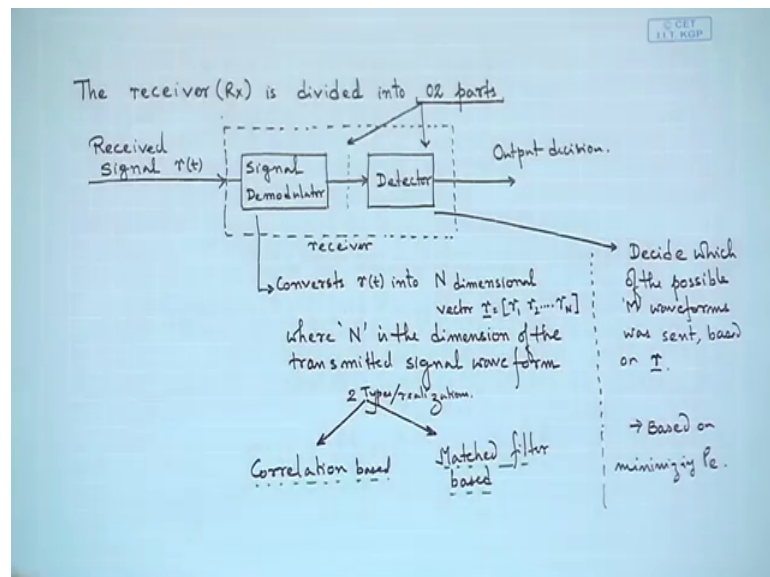 © CET
I.I.T. KGP
The receiver (Rx) is divided into 02 parts
Received
signal r(t)
Signal
Demodulator
Detector
Output decision.
receiver
Conversts r(t) into N dimensional
vector r = [r₁ r₂....r_N]
where 'N' is the dimension of the
transmitted signal waveform
2 Types/realizations.
Correlation based
Matched filter
based
Decide which
of the possible
'M' waveforms
was sent, based
on r.
→ Based on
minimizing Pe.